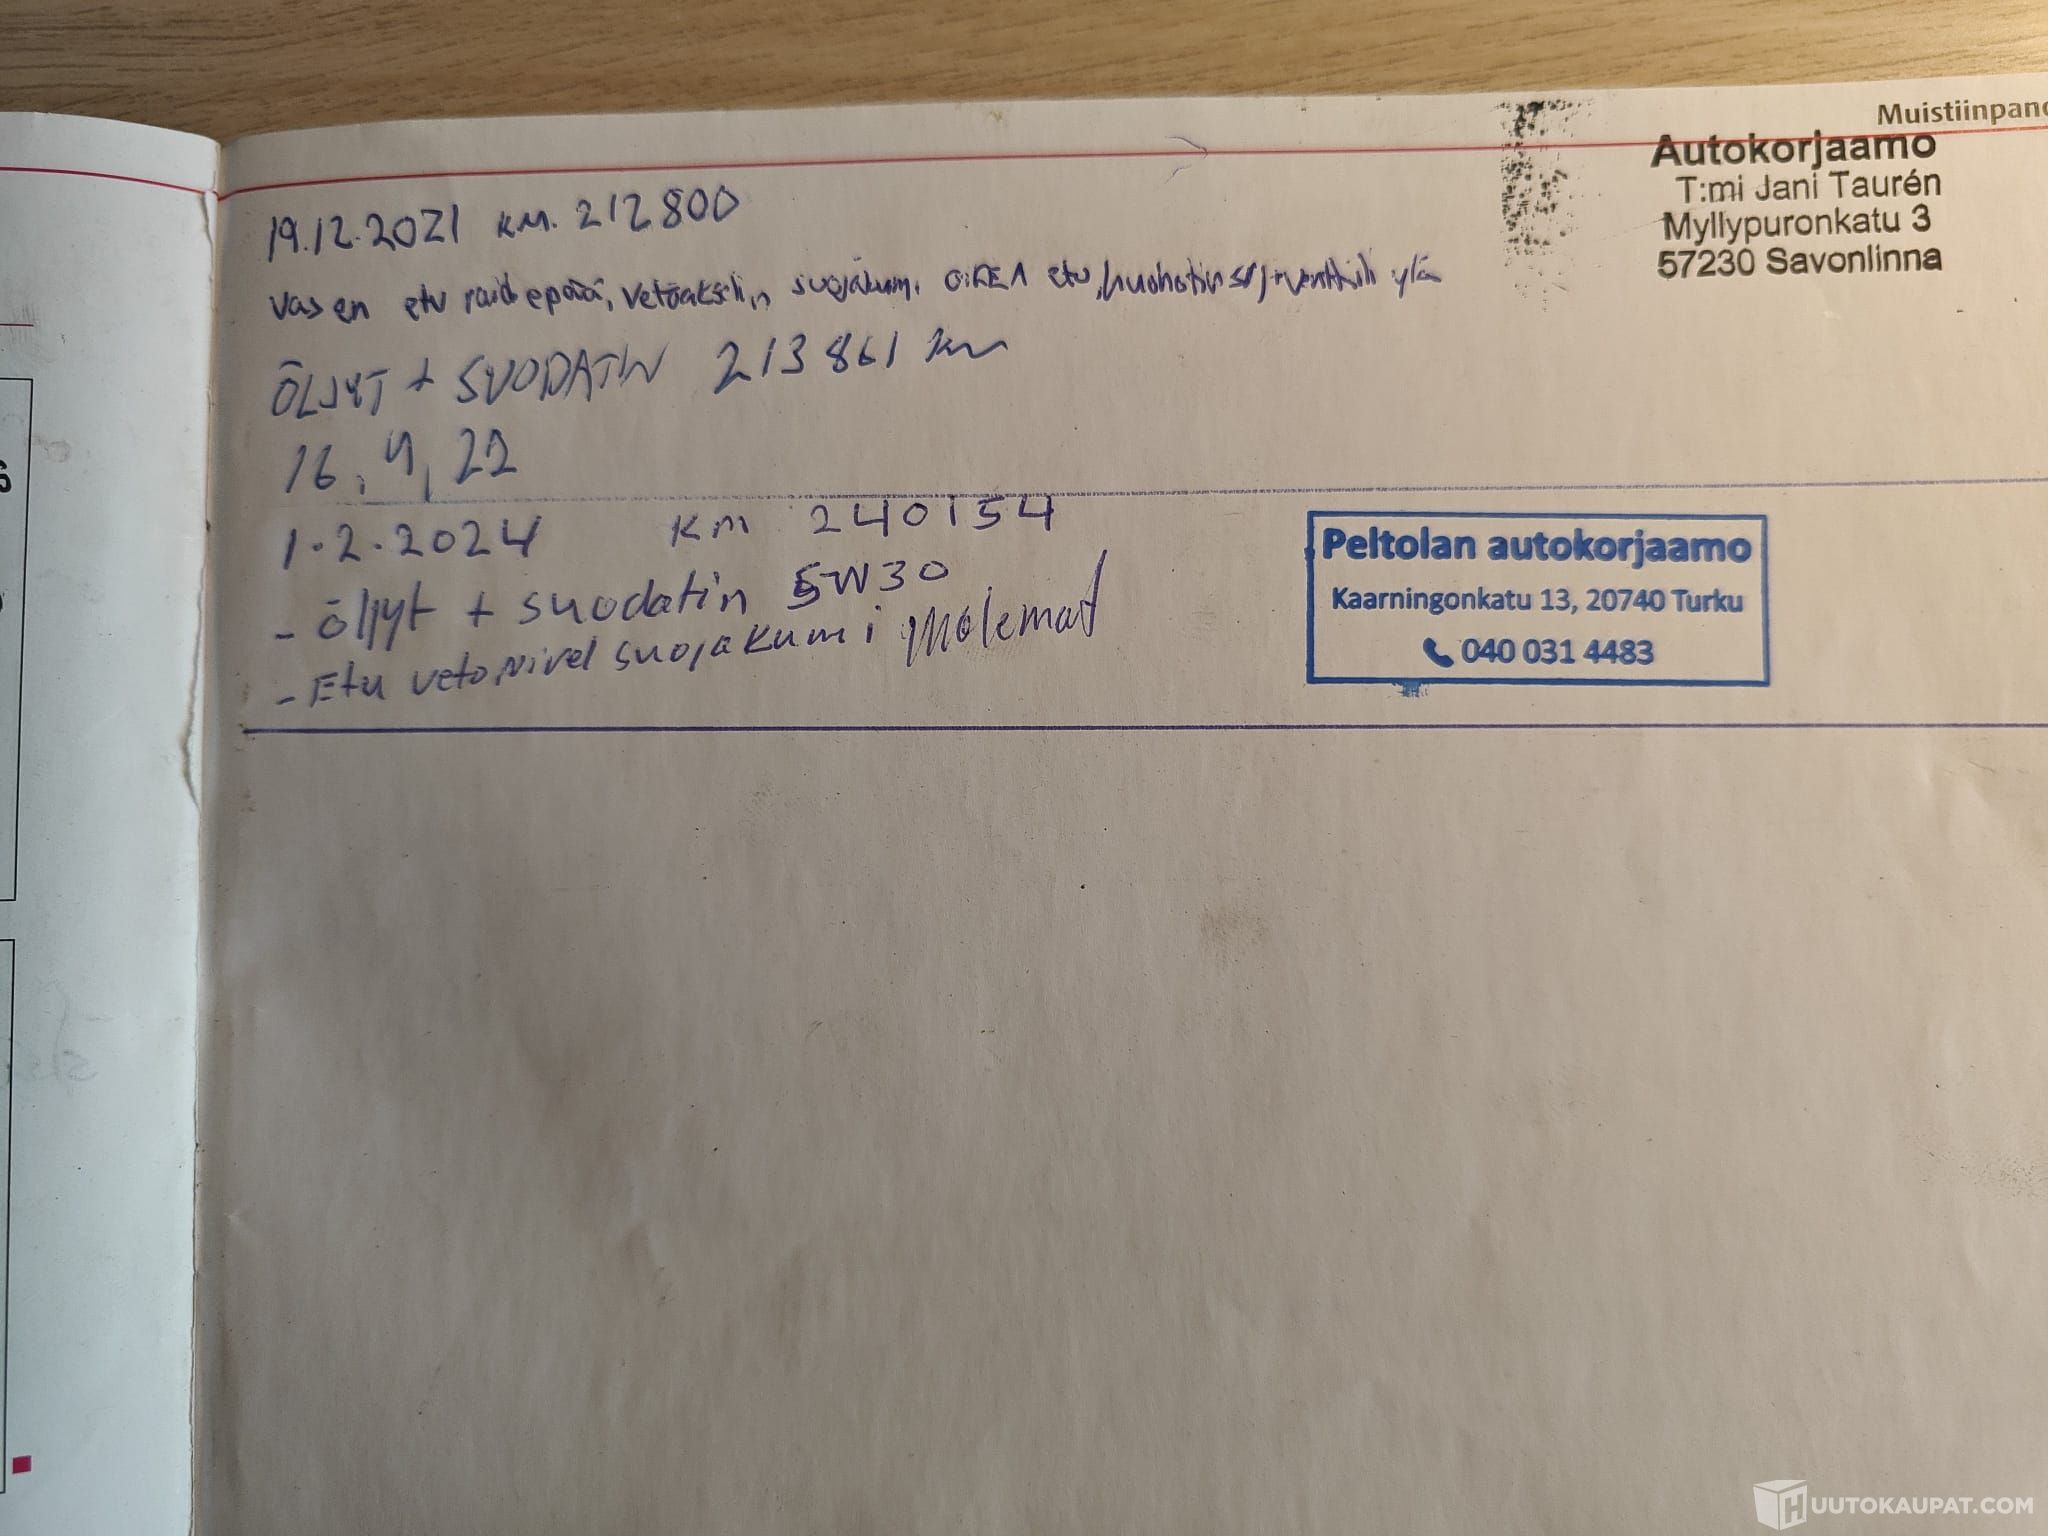 Muistiinpano
Autokorjaamo
T:mi Jani Taurén
Myllypuronkatu 3
57230 Savonlinna
19.12.2021 KM. 212800
vasen etu raidepää, vetoakselin suojakumi OIKEA etu, huohotin venttiili ylä
ÖLJYT + SUODATIN 213861 km
16,4,22
1.2.2024 KM 240154
- Öljyt + suodatin 5W30
- Etu vetonivel suojakumi molemat
Peltolan autokorjaamo
Kaarningonkatu 13, 20740 Turku
040 031 4483
HUUTOKAUPAT.COM